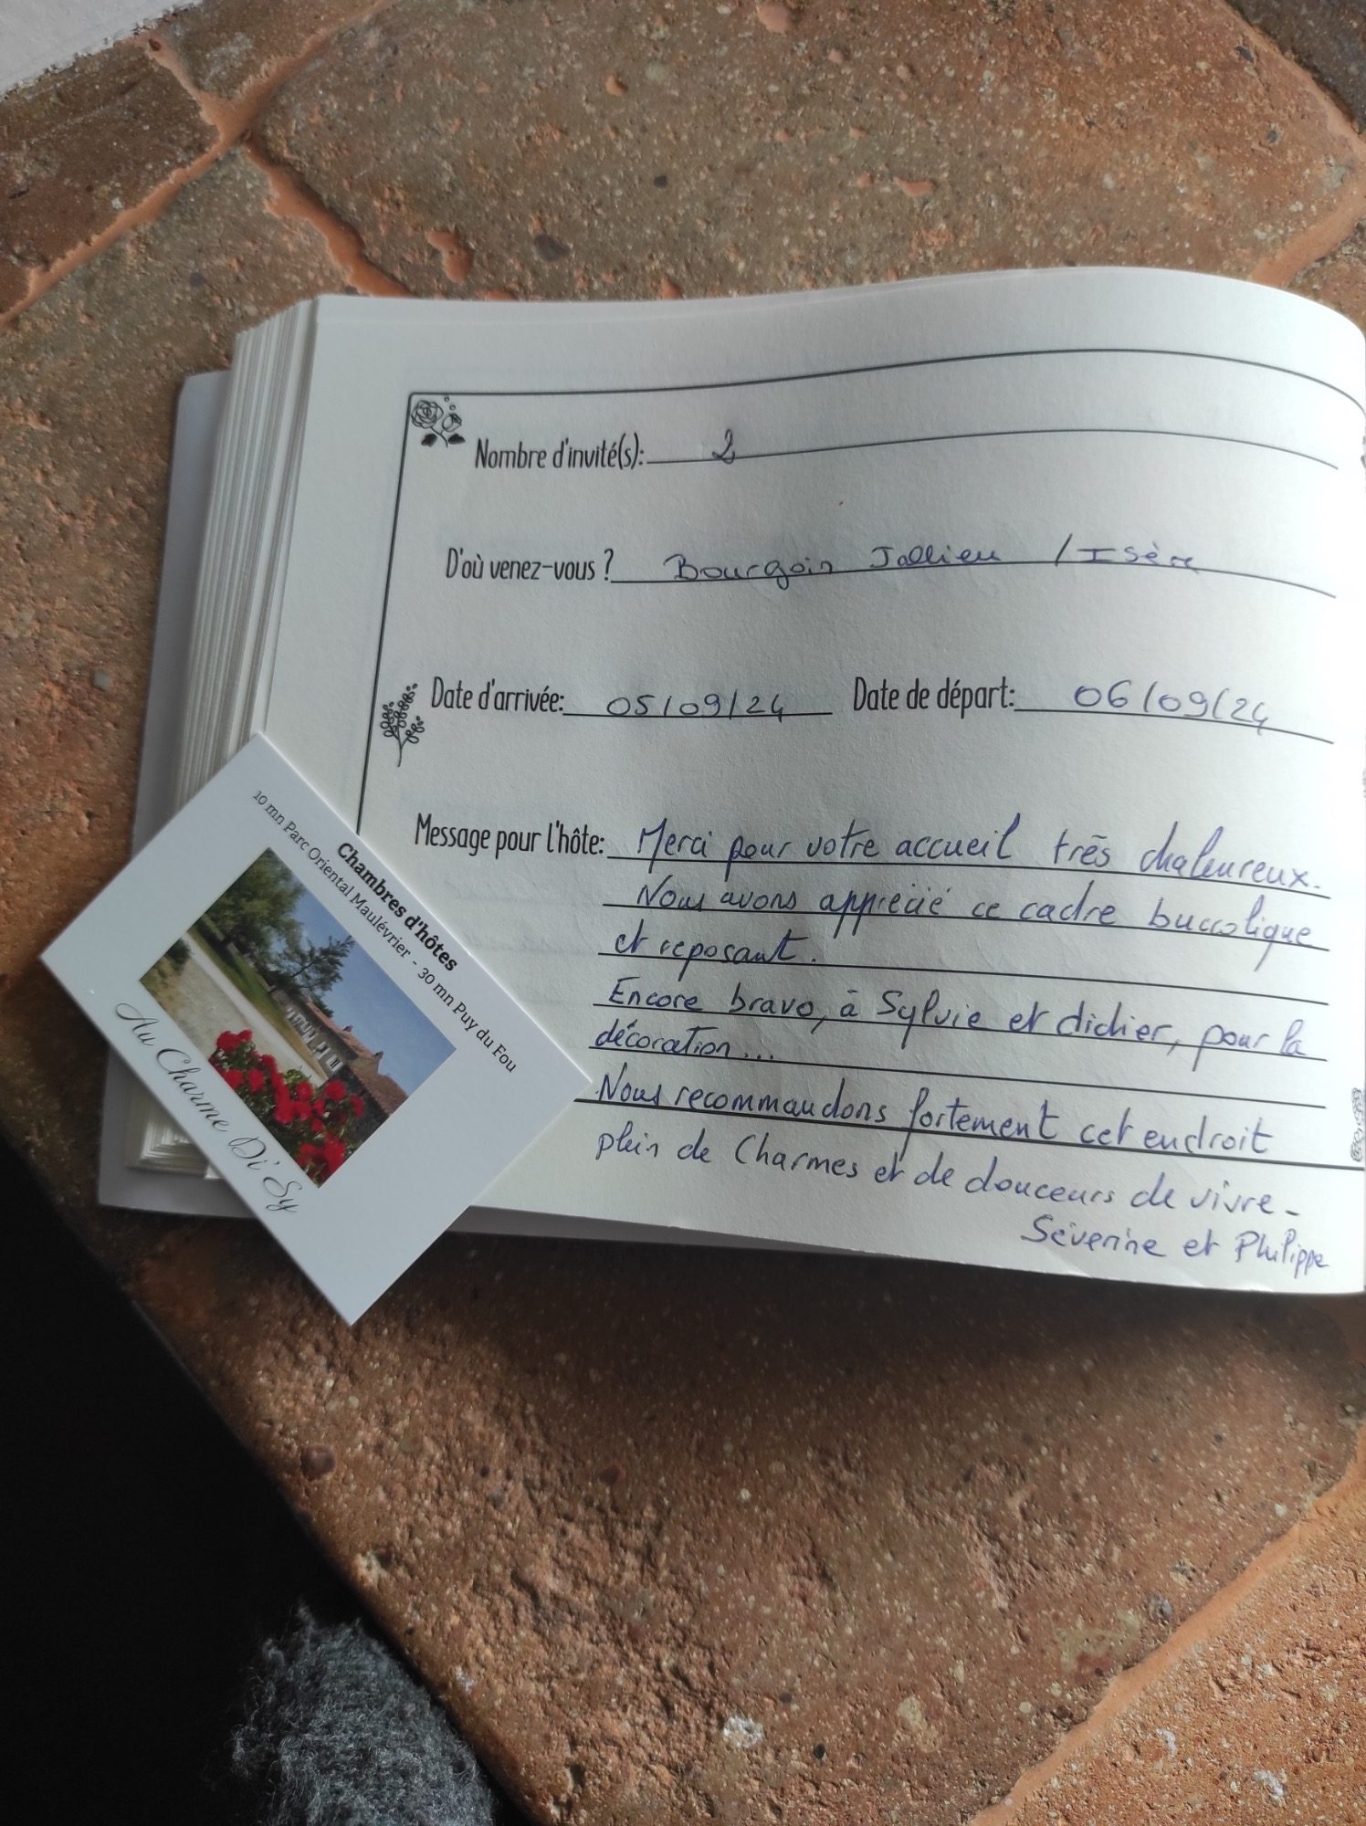 Nombre d'invité(s): 2
D'où venez-vous ? Bourgoin Jallieu / Isère
Date d'arrivée: 05/09/24 Date de départ: 06/09/24
Message pour l'hôte: Merci pour votre accueil très chaleureux.
Nous avons apprécié ce cadre buccolique
et reposant.
Encore bravo, à Sylvie et didier, pour la
décoration...
Nous recommandons fortement cet endroit
plein de Charmes et de douceurs de vivre -
Séverine et Philippe
Chambres d'hôtes
10 mn Parc Oriental Maulévrier - 30 mn Puy du Fou
Au Charme Di' Sy